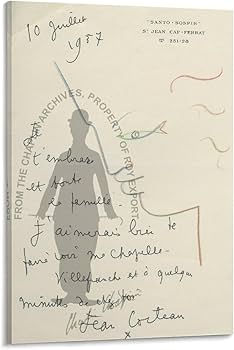 "SANTO-SOSPIR"
St JEAN CAP-FERRAT
☎ 251-28
10 Juillet
1957
t'embrasse
et toute
la famille.
J'aimerais bien te
faire voir ma chapelle
Villefranche et à quelques
minutes de chez toi
Jean Cocteau
FROM THE CHAPLIN ARCHIVES, PROPERTY OF ROY EXPORT